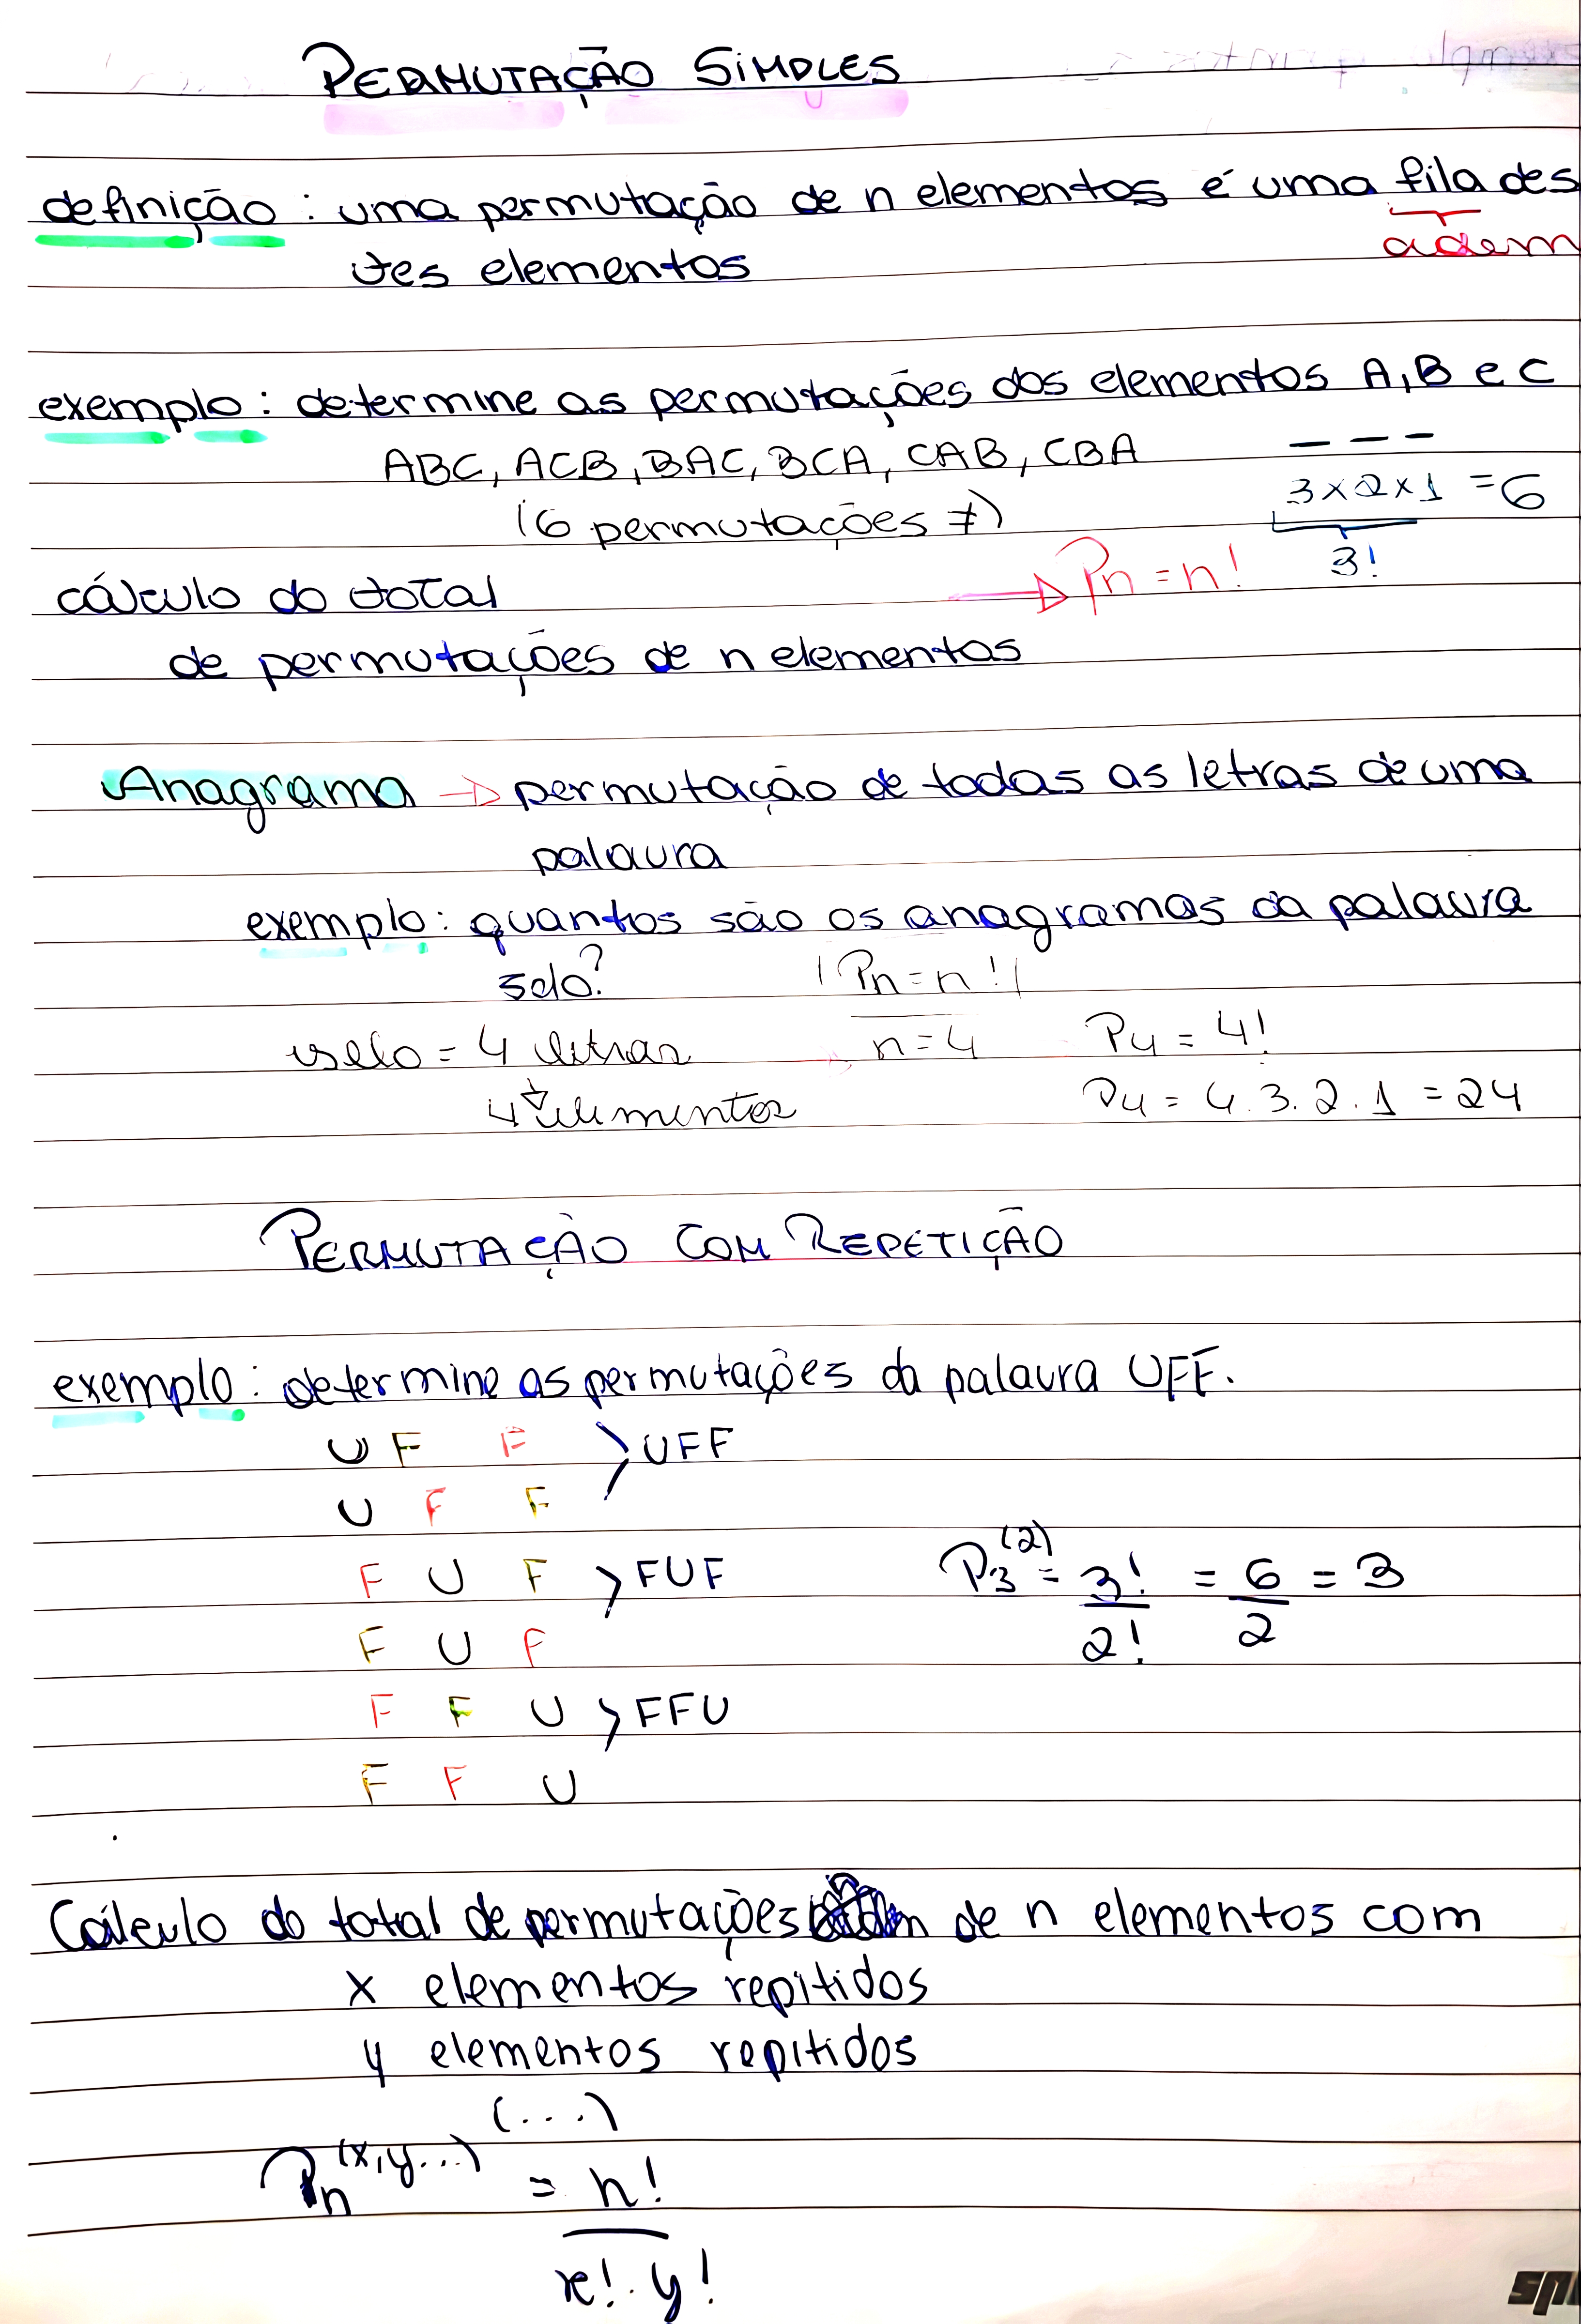 PERMUTAÇÃO SIMPLES
definição: uma permutação de n elementos é uma fila des
tes elementos
odem
exemplo: determine as permutações dos elementos A, B e C
ABC, ACB, BAC, BCA, CAB, CBA
3x2x1 = 6
(6 permutações ≠)
3!
cálculo do total → Pn = n!
de permutações de n elementos
Anagrama → permutação de todas as letras de uma
palavra
exemplo: quantos são os anagramas da palavra
selo? Pn = n!
selo = 4 letras n = 4 P4 = 4!
4 elementos P4 = 4.3.2.1 = 24
PERMUTAÇÃO COM REPETIÇÃO
exemplo: determine as permutações da palavra UFF.
U F F > UFF
U F F
F U F > FUF P3(2) = 3!/2! = 6/2 = 3
F U F
F F U > FFU
F F U
Cálculo do total de permutações de n elementos com
x elementos repitidos
y elementos repitidos
(...)
Pn(x,y...) = n!
x!.y!